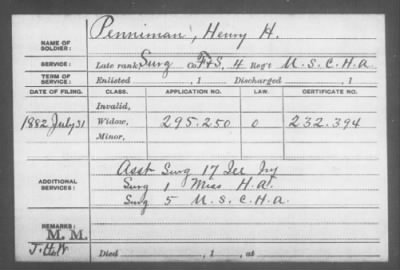 NAME OF SOLDIER: Penniman, Henry H.
SERVICE: Late rank, Surg Co. F&S, 4 Reg't U.S.C.H.A.
TERM OF SERVICE: Enlisted , 1 Discharged , 1
DATE OF FILING. CLASS. APPLICATION NO. LAW. CERTIFICATE NO.
Invalid,
1882 July 31 Widow, 295.250 0 232.394
Minor,
ADDITIONAL SERVICES: Asst Surg 17 Ill Inf
Surg 1 Miss H.A.
Surg 5 U.S.C.H.A.
REMARKS:
M. M.
J.H.W.
Died , 1 , at